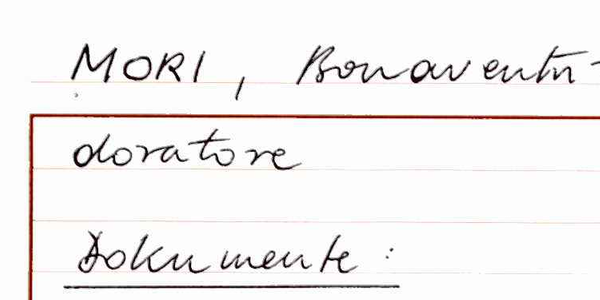 MORI, Bonaventu-
doratore
Dokumente: